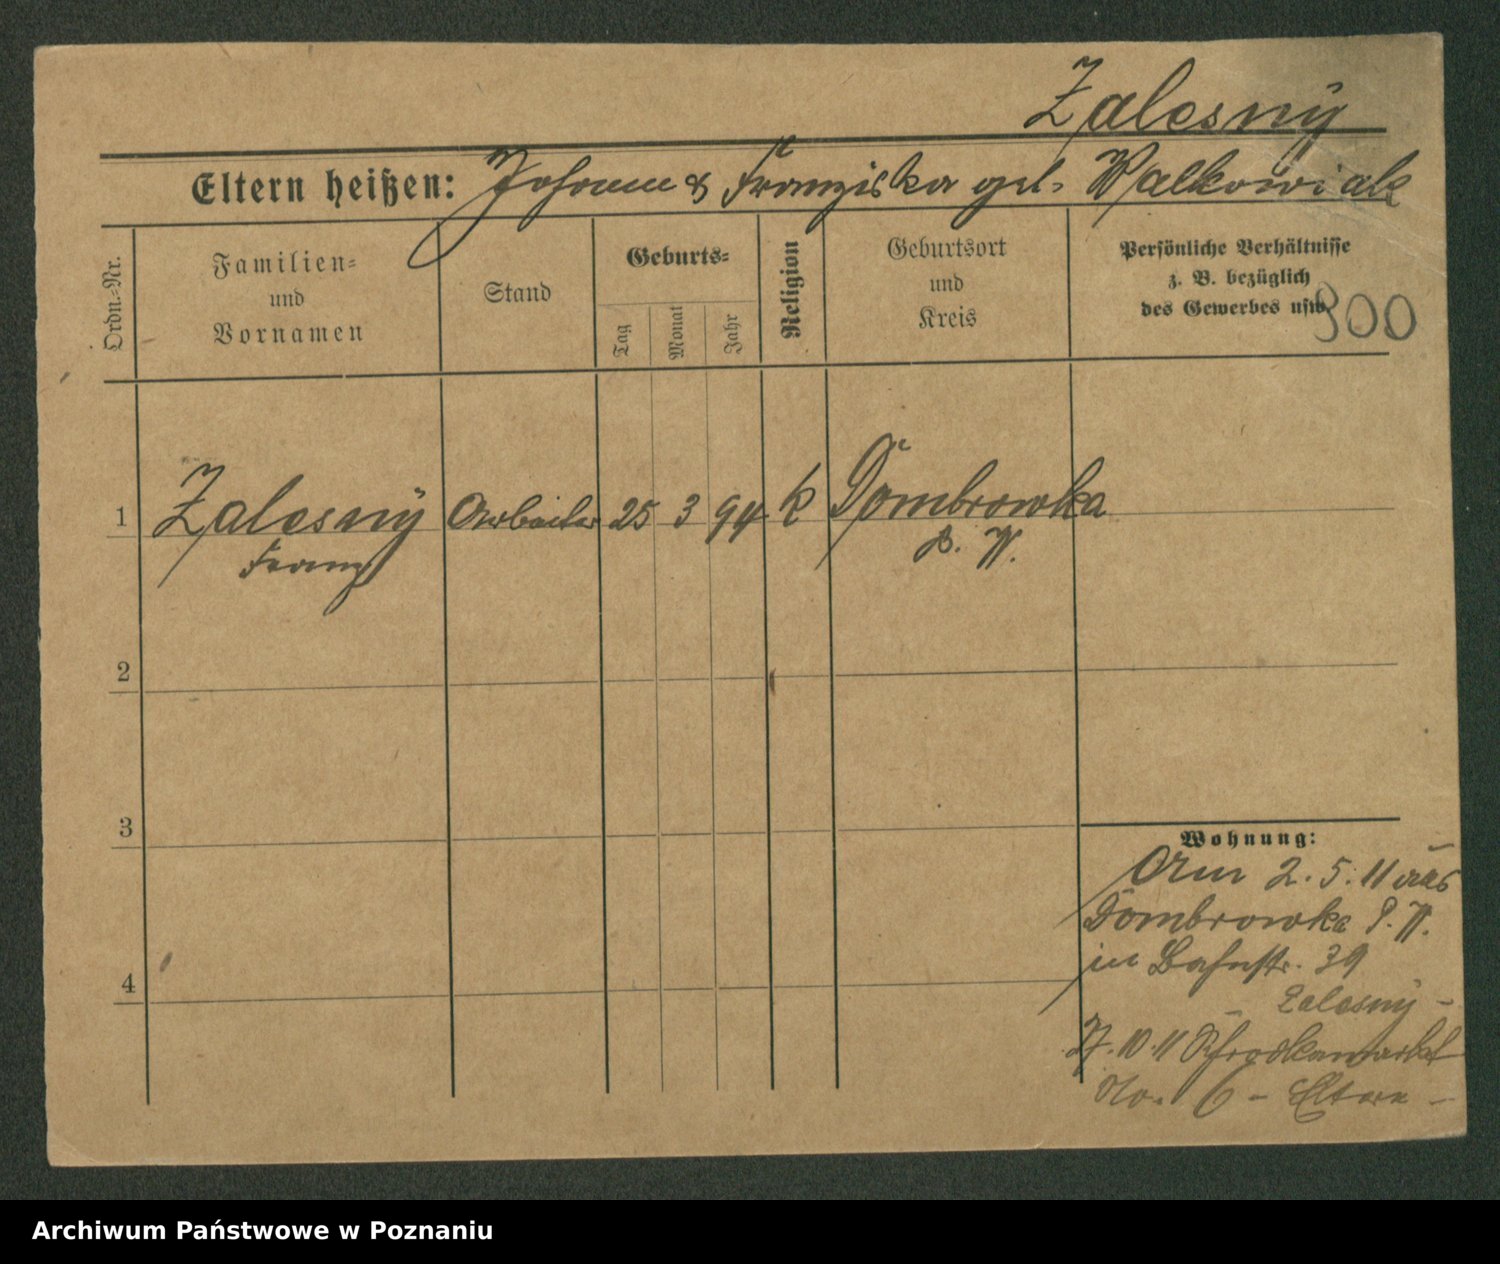 Zalesny
Eltern heißen: Johann & Franziska geb. Walkowiak
Ordn.-Nr.
Familien-
und
Vornamen
Stand
Geburts-
Tag
Monat
Jahr
Religion
Geburtsort
und
Kreis
Persönliche Verhältnisse
z. B. bezüglich
des Gewerbes usw.
300
1 Zalesny Arbeiter 25 3 94 k Dombrowka
Franz P. W.
2
3
4
Wohnung:
Am 2.5.11 aus
Dombrowka P. W.
in Bahnstr. 39
Zalesny -
10.11
No. 6 - Eltern -
Archiwum Państwowe w Poznaniu